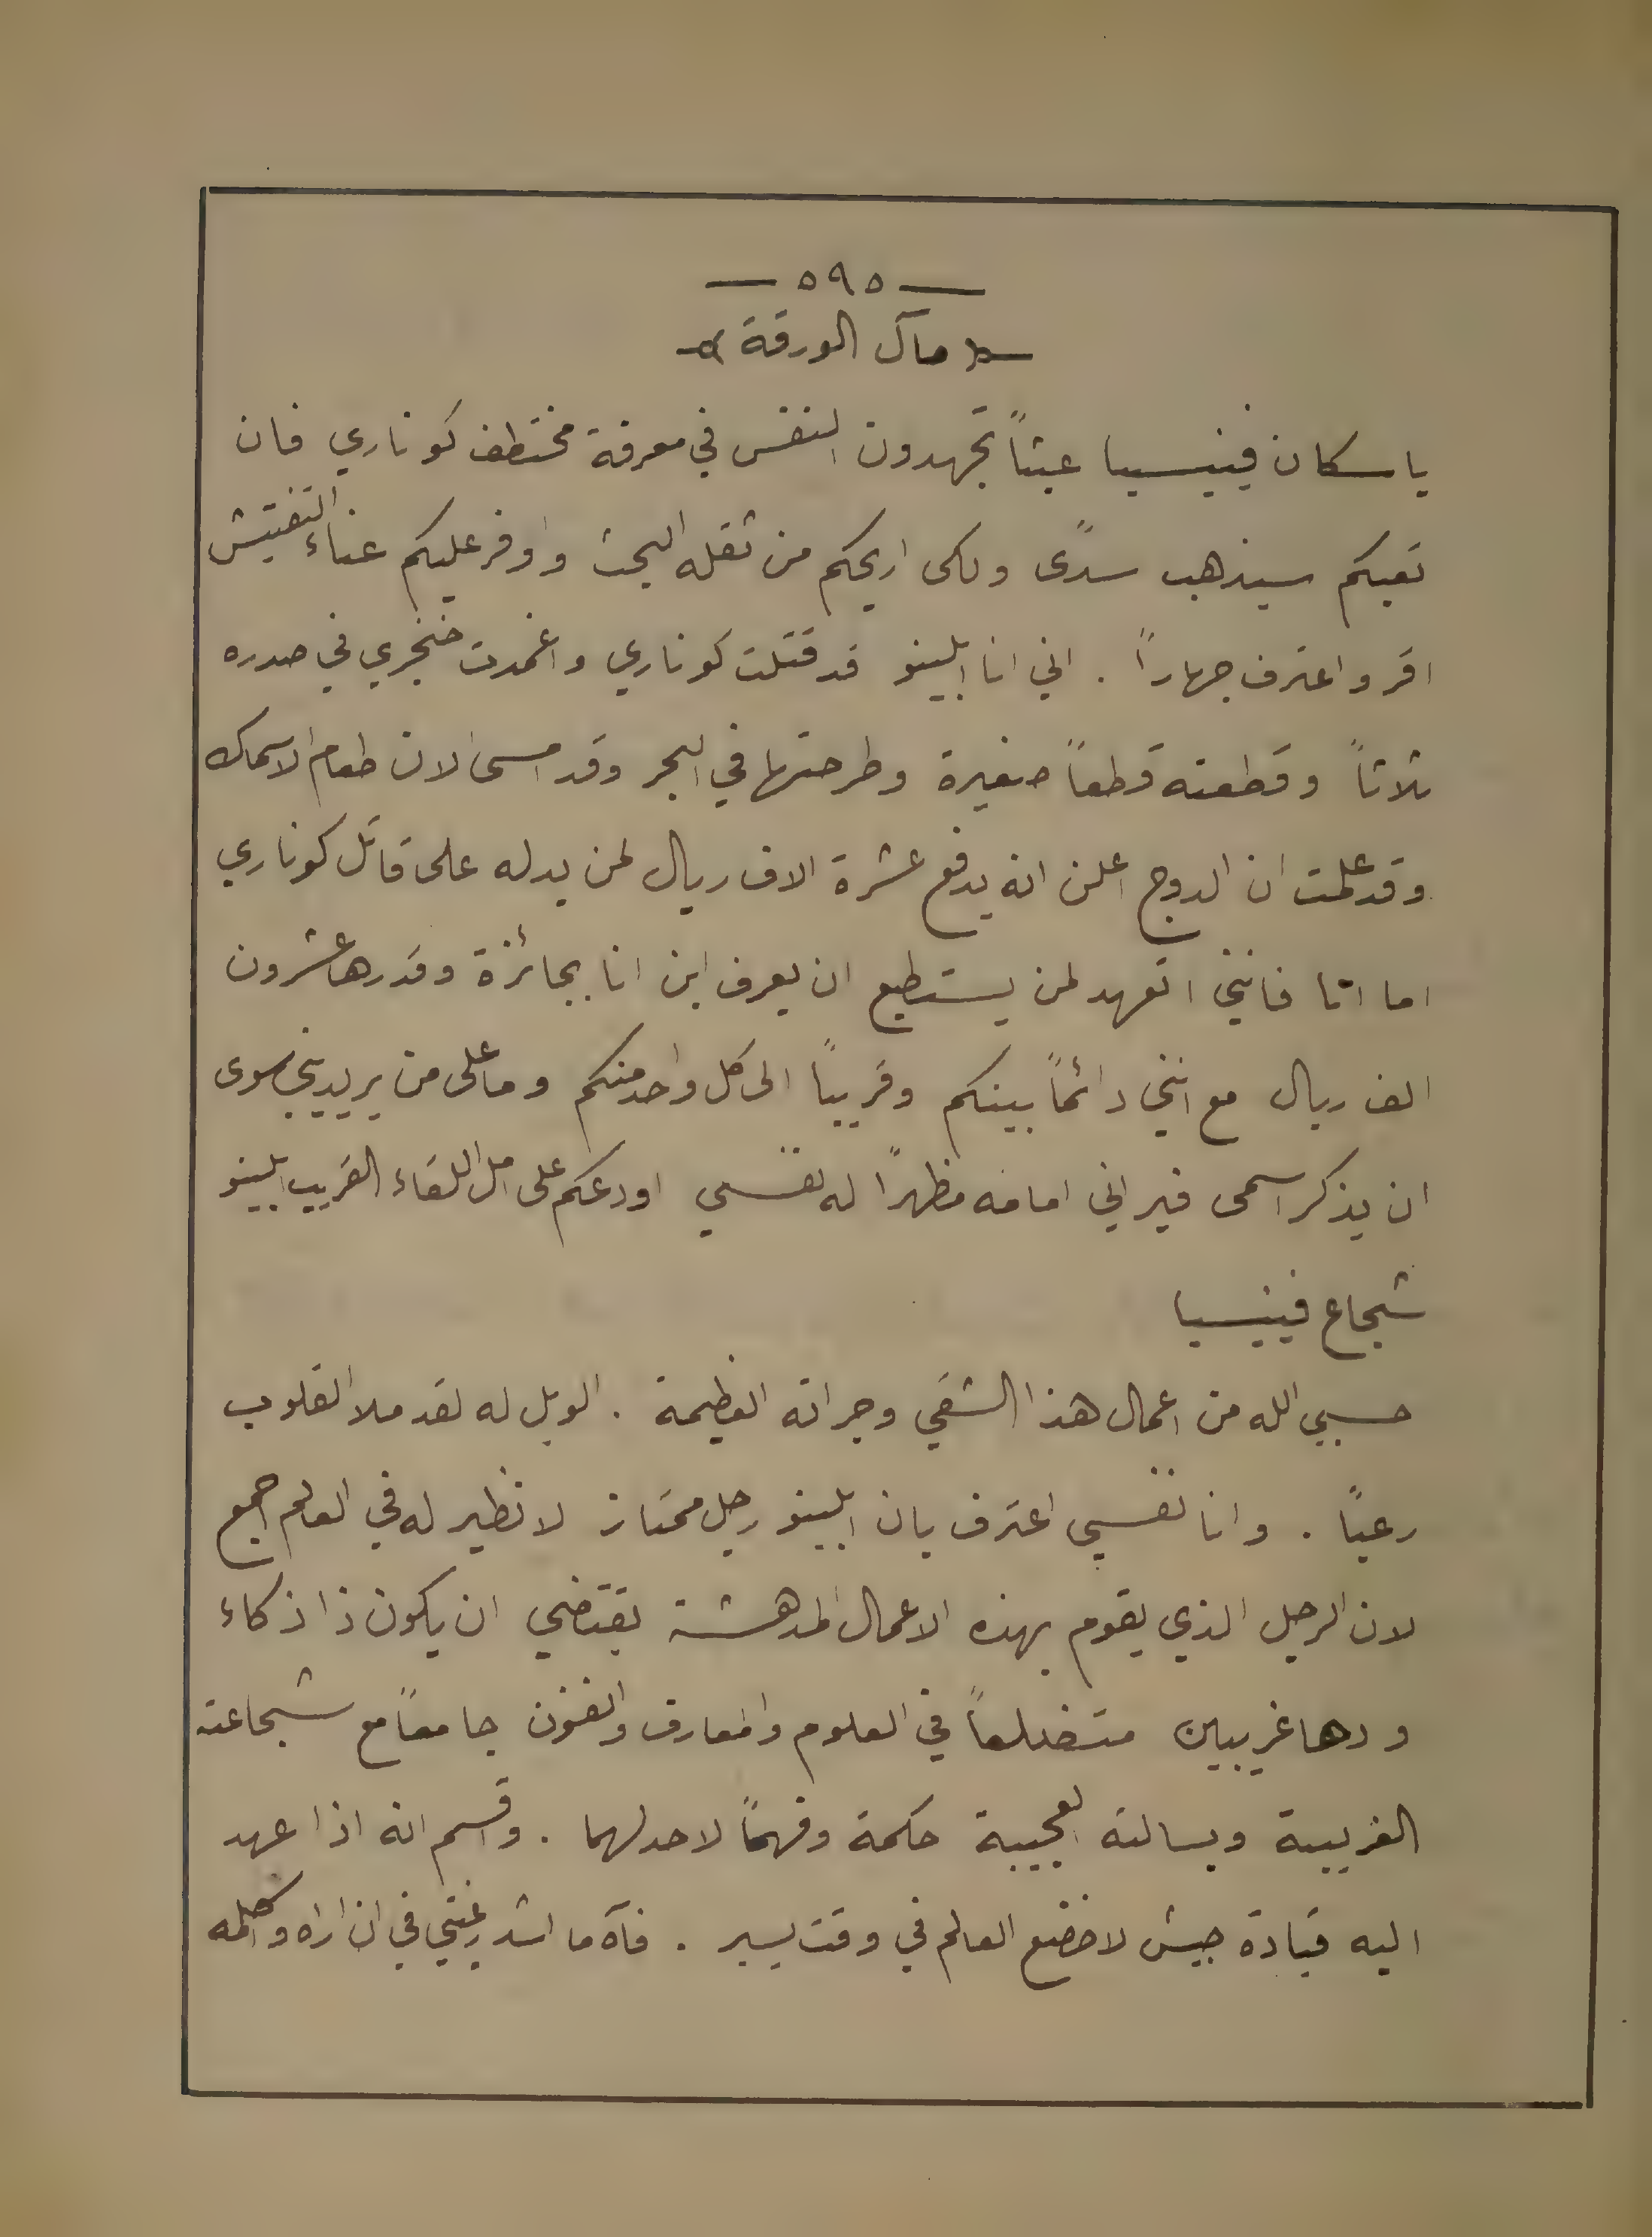 — ٥٩٥ —
مآل الورقة
يا سكان فينيسيا عبثاً تجهدون النفس في معرفة مختطف كوناري فان
تعبكم سيذهب سدًى ولكى اريحكم من ثقله البحث واوفر عليكم عناء التفتيش
اقر واعترف جهاراً . اني انا ابلينو قد قتلت كوناري واغمدت خنجري في صدره
ثلاثاً وقطعته قطعاً صغيرة وطرحتها في البحر وقد امسى الان طعام الاسماك
وقد علمت ان الدوج اعلن انه يدفع عشرة الاف ريال لمن يدله على قاتل كوناري
اما انا فانني اتعهد لمن يستطيع ان يعرف اين انا بجائزة وقدرها عشرون
الف ريال مع انني دائماً بينكم وقريباً الى كل واحد منكم وما على من يريدني سوى
ان يذكر اسمى فيراني امامه مظهراً له نفسي اودعكم على امل اللقاء القريب ابلينو
شجاع فينيسيا
حسبي الله من اعمال هذا الشقي وجراته العظيمة . الويل له لقد ملا القلوب
رعباً . وانا نفسي اعترف بان ابلينو رجل ممتاز لا نظير له في العالم اجمع
لان الرجل الذي يقوم بهذه الاعمال المدهشة يقتضي ان يكون ذا ذكاء
ودها غريبين متضلعاً في العلوم والمعارف والفنون جامعاً مع شجاعته
الغريبة وبسالته العجيبة حكمة وفهماً لا حد لهما . واقسم انه اذا عهد
اليه قيادة جيش لاخضع العالم في وقت يسير . فآه ما اشد رغبتي في ان اراه واكلمه